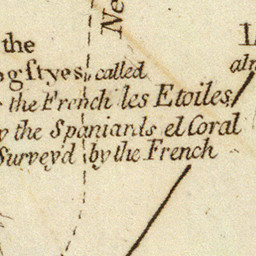 Ne
the
ogstyes, called
the French les Etoiles,
the Spaniards el Coral
Survey'd by the French